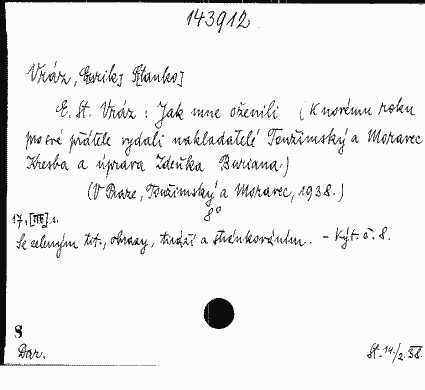 143912.
Vráz, E[nrik] St[anko]
E. St. Vráz: Jak mne oženili (K novému roku
pro své přátele vydali nakladatelé Toužimský a Moravec
Kresba a úprava Zdeňka Buriana)
(V Praze, Toužimský a Moravec, 1938.)
8°
17, [III] s.
Se celeným tit., obrazy, tiráží a stránkováním. - Výt. č. 8.
8
Dar.
St. 14/2.38.